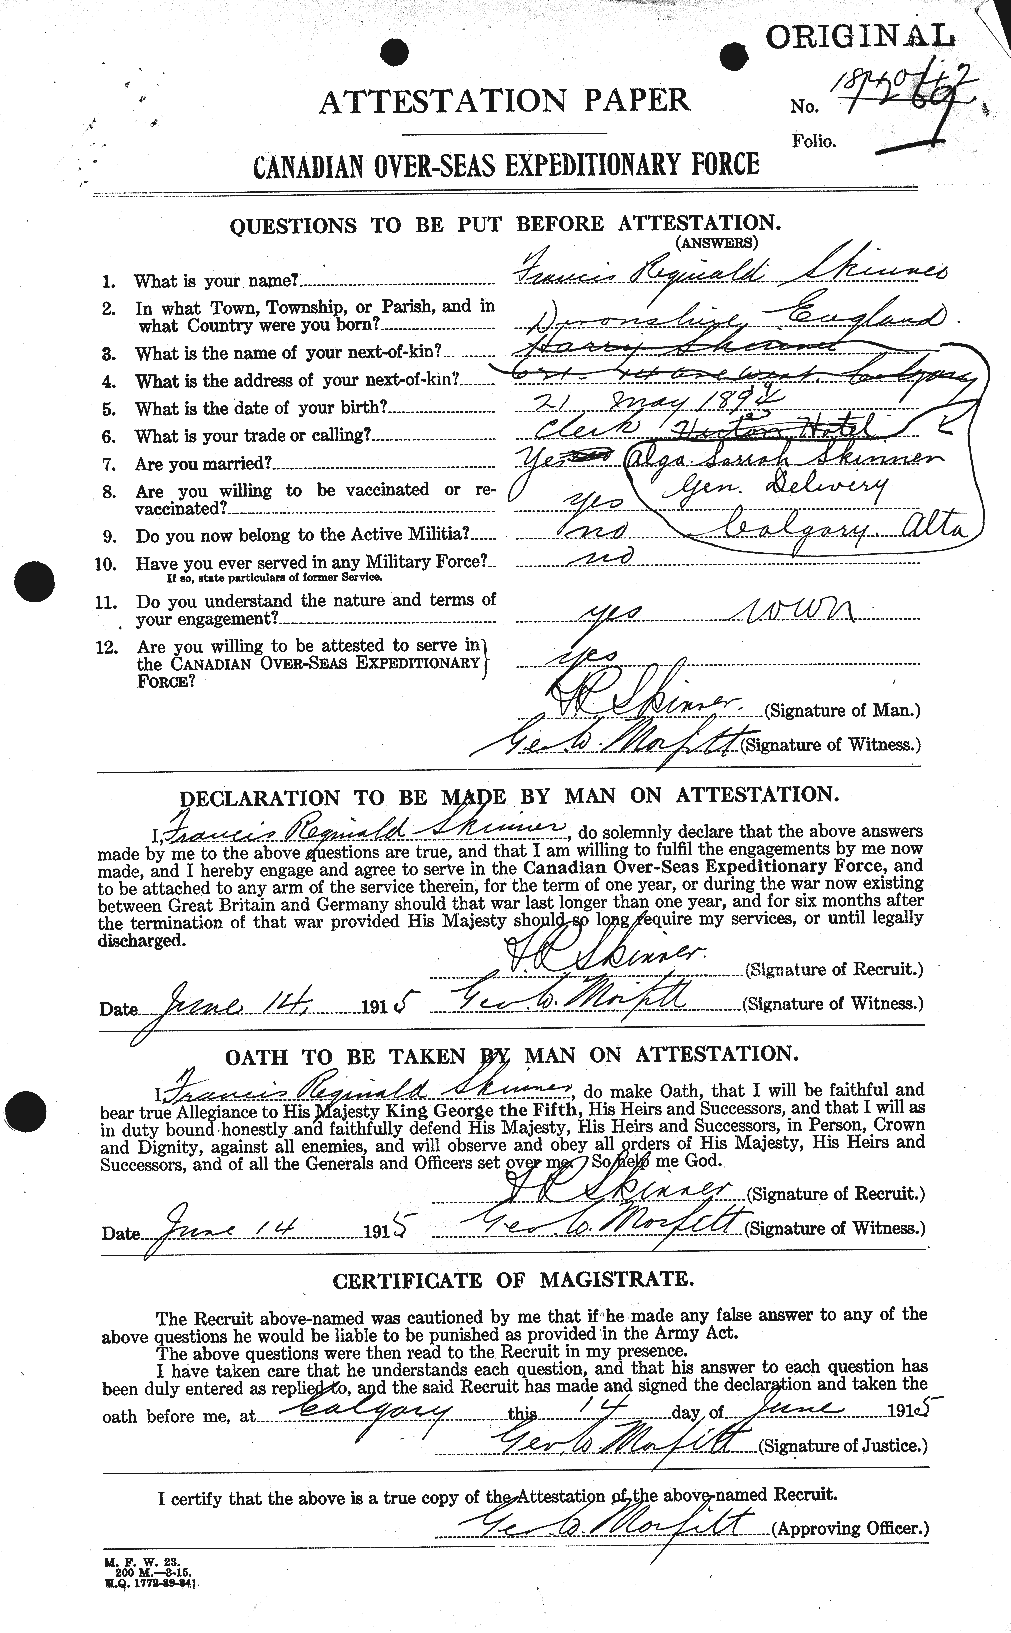 ORIGINAL
ATTESTATION PAPER
No.
Folio.
CANADIAN OVER-SEAS EXPEDITIONARY FORCE
QUESTIONS TO BE PUT BEFORE ATTESTATION.
(ANSWERS)
1. What is your name? Francis Reginald Skinner
2. In what Town, Township, or Parish, and in
what Country were you born? Devonshire, England.
3. What is the name of your next-of-kin? Harry Skinner
4. What is the address of your next-of-kin? Calgary
5. What is the date of your birth? 21 May 1894
6. What is your trade or calling? Clerk Hotel
7. Are you married? Yes Alga Sarah Skinner
8. Are you willing to be vaccinated or re- Gen. Delivery
vaccinated? yes
9. Do you now belong to the Active Militia? no Calgary. Alta
10. Have you ever served in any Military Force? no
If so, state particulars of former Service.
11. Do you understand the nature and terms of
your engagement? yes
12. Are you willing to be attested to serve in
the CANADIAN OVER-SEAS EXPEDITIONARY yes
FORCE?
F R Skinner. (Signature of Man.)
Geo W. Morfitt (Signature of Witness.)
DECLARATION TO BE MADE BY MAN ON ATTESTATION.
I, Francis Reginald Skinner, do solemnly declare that the above answers
made by me to the above questions are true, and that I am willing to fulfil the engagements by me now
made, and I hereby engage and agree to serve in the Canadian Over-Seas Expeditionary Force, and
to be attached to any arm of the service therein, for the term of one year, or during the war now existing
between Great Britain and Germany should that war last longer than one year, and for six months after
the termination of that war provided His Majesty should so long require my services, or until legally
discharged.
F. R Skinner. (Signature of Recruit.)
Date June 14, 1915 Geo W. Morfitt (Signature of Witness.)
OATH TO BE TAKEN BY MAN ON ATTESTATION.
I, Francis Reginald Skinner, do make Oath, that I will be faithful and
bear true Allegiance to His Majesty King George the Fifth, His Heirs and Successors, and that I will as
in duty bound honestly and faithfully defend His Majesty, His Heirs and Successors, in Person, Crown
and Dignity, against all enemies, and will observe and obey all orders of His Majesty, His Heirs and
Successors, and of all the Generals and Officers set over me. So help me God.
F R Skinner (Signature of Recruit.)
Date June 14 1915 Geo W. Morfitt (Signature of Witness.)
CERTIFICATE OF MAGISTRATE.
The Recruit above-named was cautioned by me that if he made any false answer to any of the
above questions he would be liable to be punished as provided in the Army Act.
The above questions were then read to the Recruit in my presence.
I have taken care that he understands each question, and that his answer to each question has
been duly entered as replied to, and the said Recruit has made and signed the declaration and taken the
oath before me, at Calgary this 14 day of June 1915
Geo W Morfitt (Signature of Justice.)
I certify that the above is a true copy of the Attestation of the above-named Recruit.
Geo W. Morfitt (Approving Officer.)
M. F. W. 23.
200 M.—3-15.
H.Q. 1772-39-841.